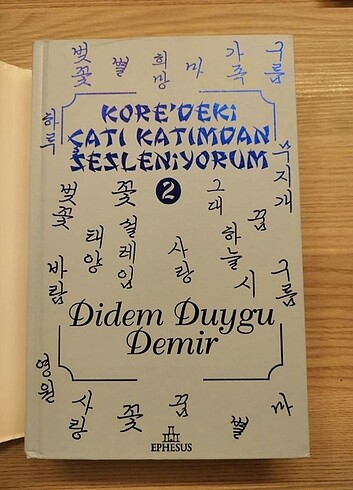 벚꽃
별
희망
마
가족
구름
하루
KORE'DEKİ
ÇATI KATIMDAN
SESLENİYORUM
2
무지개
벚꽃
꽃
그대
꿈
태양
설레임
사랑
하늘
시
구름
바람
Didem Duygu
Demir
영원
사랑
꽃
꿈
별
마
EPHESUS